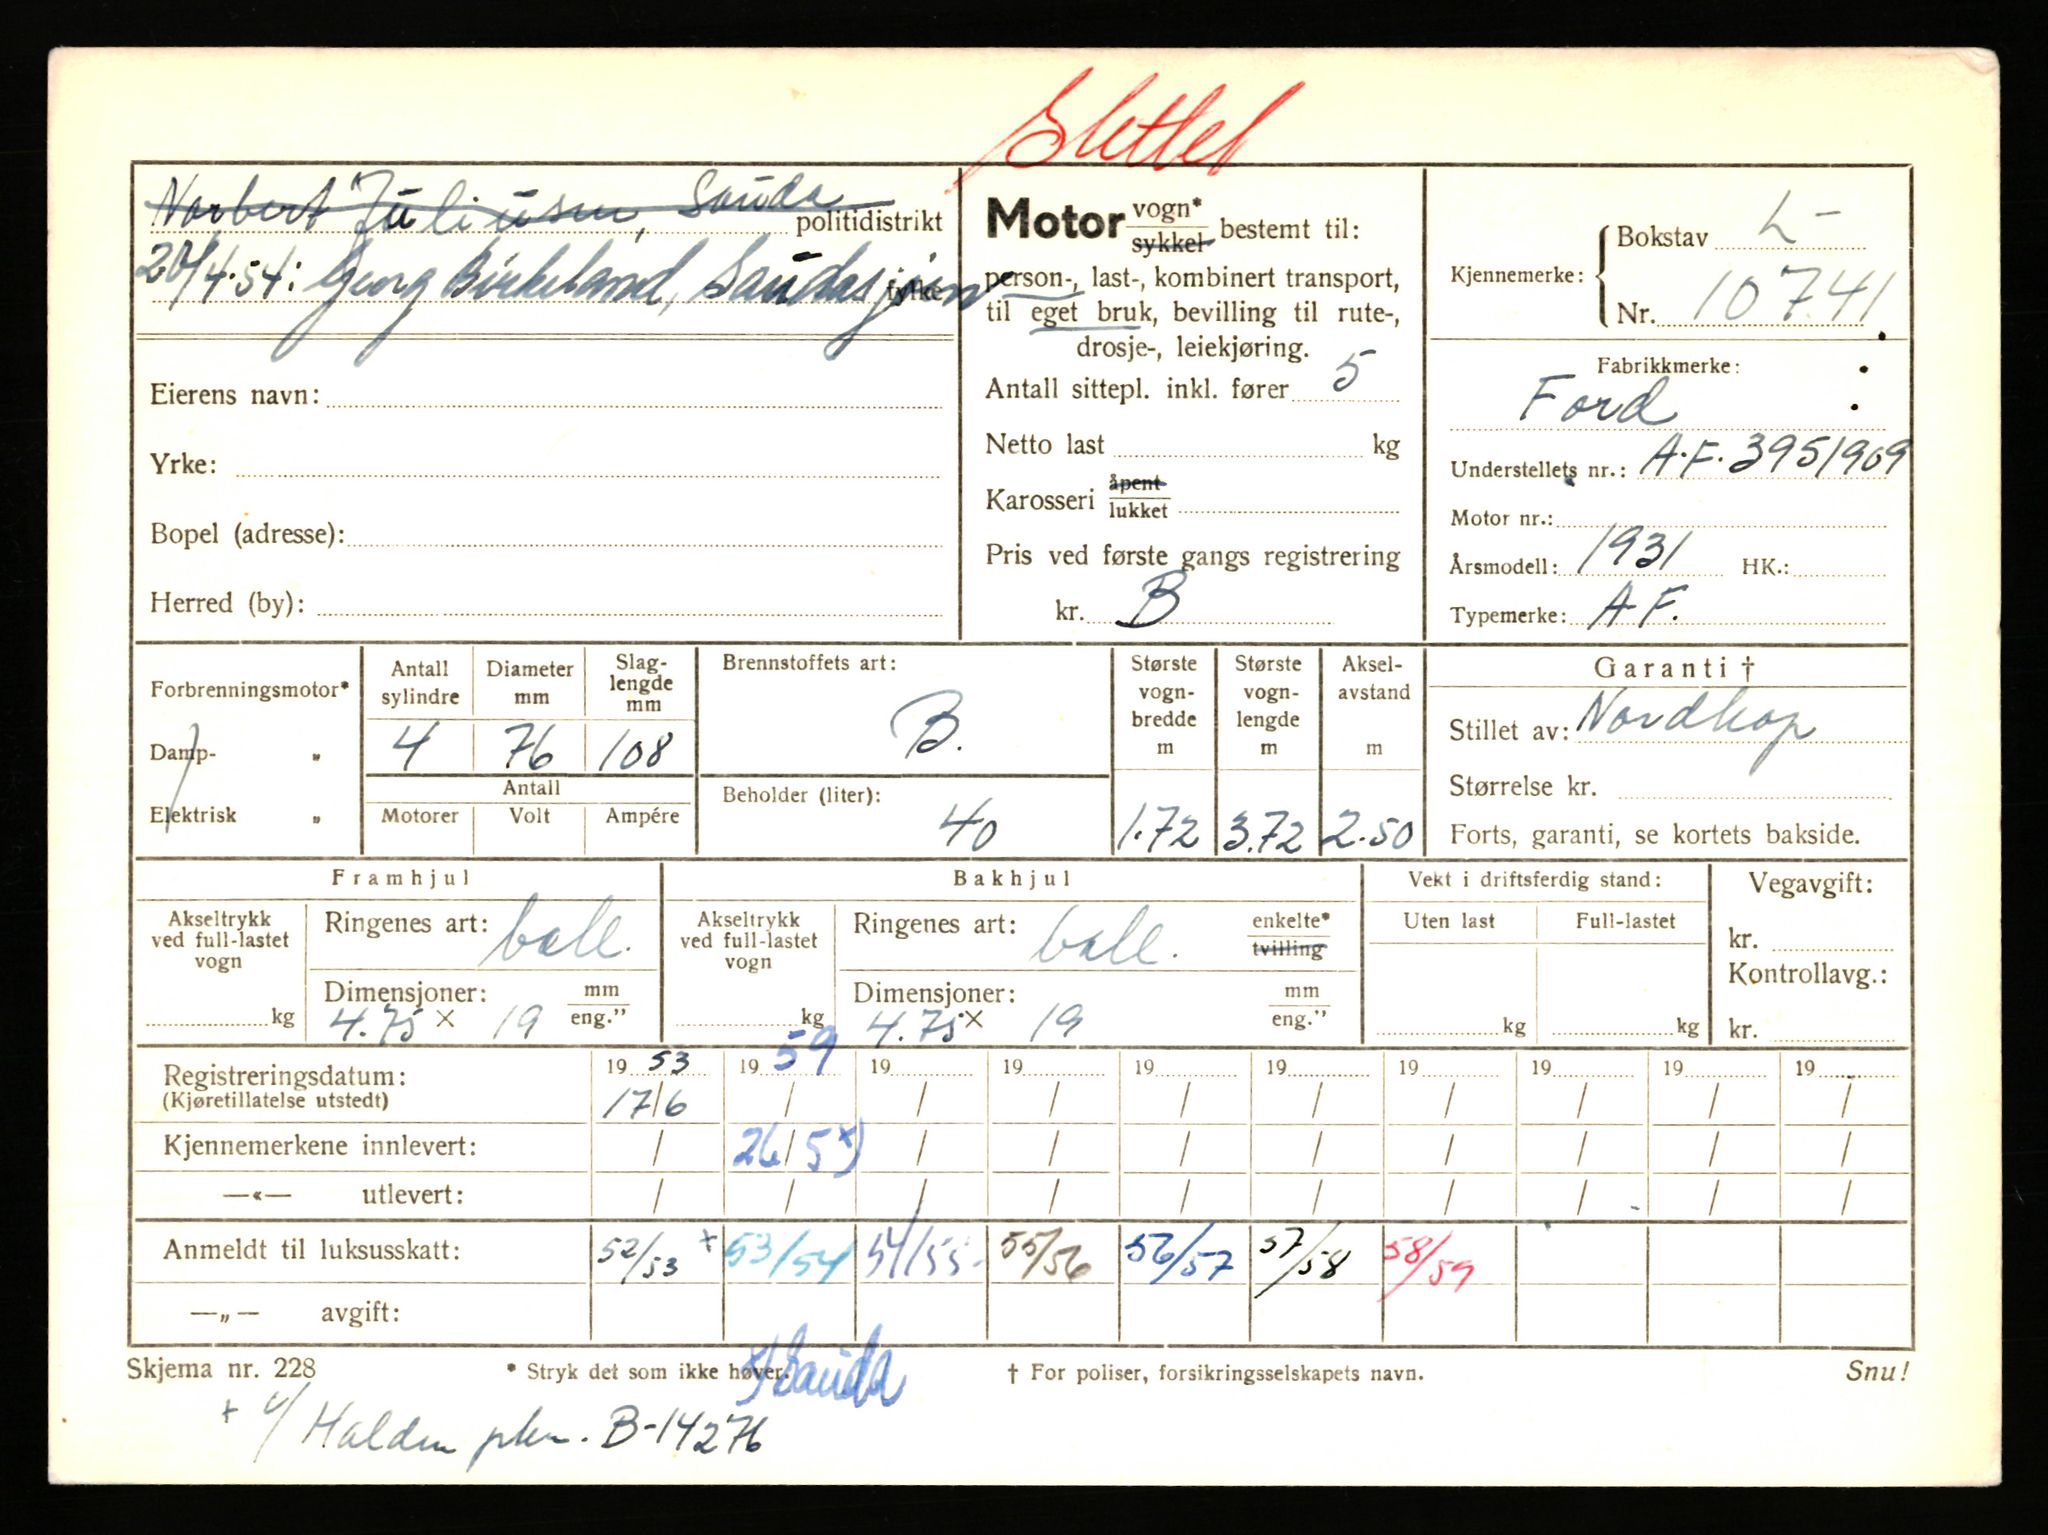 Slettet
Norbert Juliusen, Sauda politidistrikt
20/4.54: Georg Birkeland, Saudasjøen fylke
Eierens navn:
Yrke:
Bopel (adresse):
Herred (by):
Motor vogn* sykkel bestemt til:
person-, last-, kombinert transport,
til eget bruk, bevilling til rute-,
drosje-, leiekjøring.
Antall sittepl. inkl. fører 5
Netto last kg
Karosseri åpent lukket
Pris ved første gangs registrering
kr. B
Kjennemerke: Bokstav L-
Nr. 10741
Fabrikkmerke:
Ford
Understellets nr.: A.F. 3951909
Motor nr.:
Årsmodell: 1931 HK.:
Typemerke: A.F.
Forbrenningsmotor*
Damp- „
Elektrisk „
Antall sylindre Diameter mm Slag-lengde mm
4 76 108
Antall
Motorer Volt Ampére
Brennstoffets art:
B.
Beholder (liter):
40
Største vogn-bredde m Største vogn-lengde m Aksel-avstand m
1.72 3.72 2.50
Garanti †
Stillet av: Nordkap
Størrelse kr.
Forts, garanti, se kortets bakside.
Framhjul
Akseltrykk ved full-lastet vogn
kg
Ringenes art: ball.
Dimensjoner: mm eng."
4.75 x 19
Bakhjul
Akseltrykk ved full-lastet vogn
kg
Ringenes art: ball. enkelte* tvilling
Dimensjoner: mm eng."
4.75 x 19
Vekt i driftsferdig stand:
Uten last Full-lastet
kg kg
Vegavgift:
kr.
Kontrollavg.:
kr.
Registreringsdatum: 19 53 19 59 19 19 19 19 19 19 19 19
(Kjøretillatelse utstedt) 17/6 / / / / / / / / /
Kjennemerkene innlevert: / 26/5 x) / / / / / / / /
—«— utlevert: / / / / / / / / / /
Anmeldt til luksusskatt: 52/53 + 53/54 54/55- 55/56 56/57 57/58 58/59
—„— avgift:
Skjema nr. 228 * Stryk det som ikke høver. x) Sauda † For poliser, forsikringsselskapets navn. Snu!
+ v/ Halden pkm. B-14276